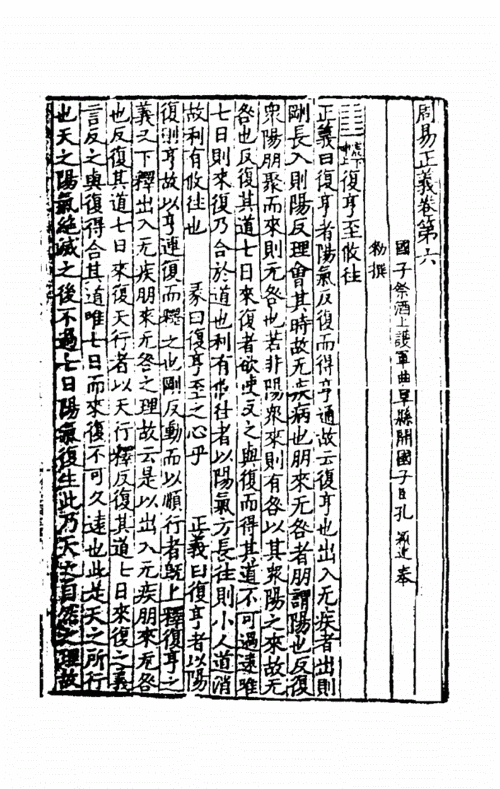 周易正義卷第六
國子祭酒上護軍曲阜縣開國子臣孔穎達奉
勅撰
震下坤上復亨至攸往
正義曰復亨者陽氣反復而得亨通故云復亨也出入无疾者出則
剛長入則陽反理會其時故无疾病也朋來无咎者朋謂陽也反復
衆陽朋聚而來則无咎也若非陽衆來則有咎以其衆陽之來故无
咎也反復其道七日來復者欲使反之與復而得其道不可過遠唯
七日則來復乃合於道也利有攸往者以陽氣方長往則小人道消
故利有攸往也 彖曰復亨至之心乎 正義曰復亨者以陽
復則亨故以亨連復而釋之也剛反動而以順行者旣上釋復亨之
義又下釋出入无疾朋來无咎之理故云是以出入无疾朋來无咎
也反復其道七日來復天行者以天行釋反復其道七日來復之義
言反之與復得合其道唯七日而來復不可久遠也此是天之所行
也天之陽氣絕滅之後不過七日陽氣復生此乃天之自然之理故